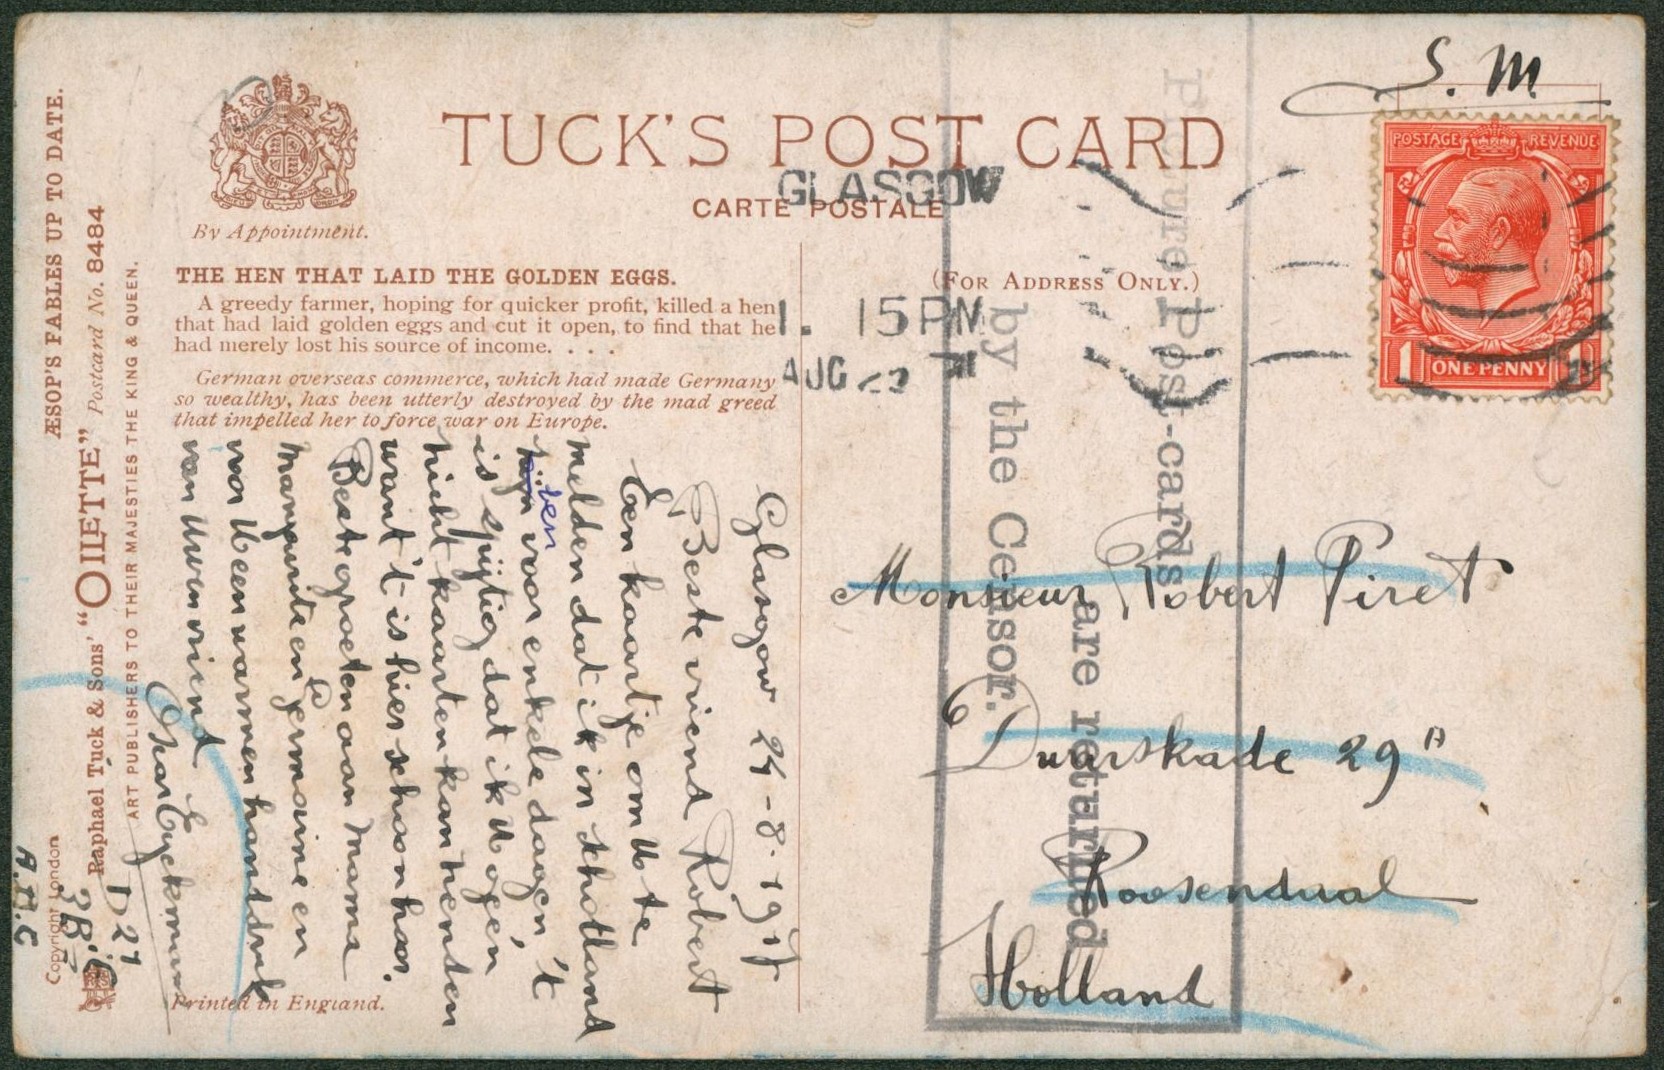 ÆSOP'S FABLES UP TO DATE.
Raphael Tuck & Sons' "OILETTE" Postcard No. 8484
ART PUBLISHERS TO THEIR MAJESTIES THE KING & QUEEN.
Copyright London
By Appointment.
TUCK'S POST CARD
CARTE POSTALE
THE HEN THAT LAID THE GOLDEN EGGS.
A greedy farmer, hoping for quicker profit, killed a hen
that had laid golden eggs and cut it open, to find that he
had merely lost his source of income. . . .
German overseas commerce, which had made Germany
so wealthy, has been utterly destroyed by the mad greed
that impelled her to force war on Europe.
(FOR ADDRESS ONLY.)
Printed in England.
S. M
POSTAGE REVENUE
1 ONE PENNY
GLASGOW
1. 15 PM
AUG
Picture Post-cards
are returned
by the Censor.
Glasgow 24-8-1917
Beste vriend Robert
Een kaartje om U te
melden dat ik in schotland
ben voor enkele dagen, 't
is spijtig dat ik U geen
zicht kaarten kan zenden
want 't is hier schoon hoor.
Beste groeten aan Mama
Marguerite en Germaine en
voor U een warmen handdruk
van Uwen vriend
Eyckmans
D 27
A.H.C
Monsieur Robert Piret
Kade 29A
Roosendaal
Holland